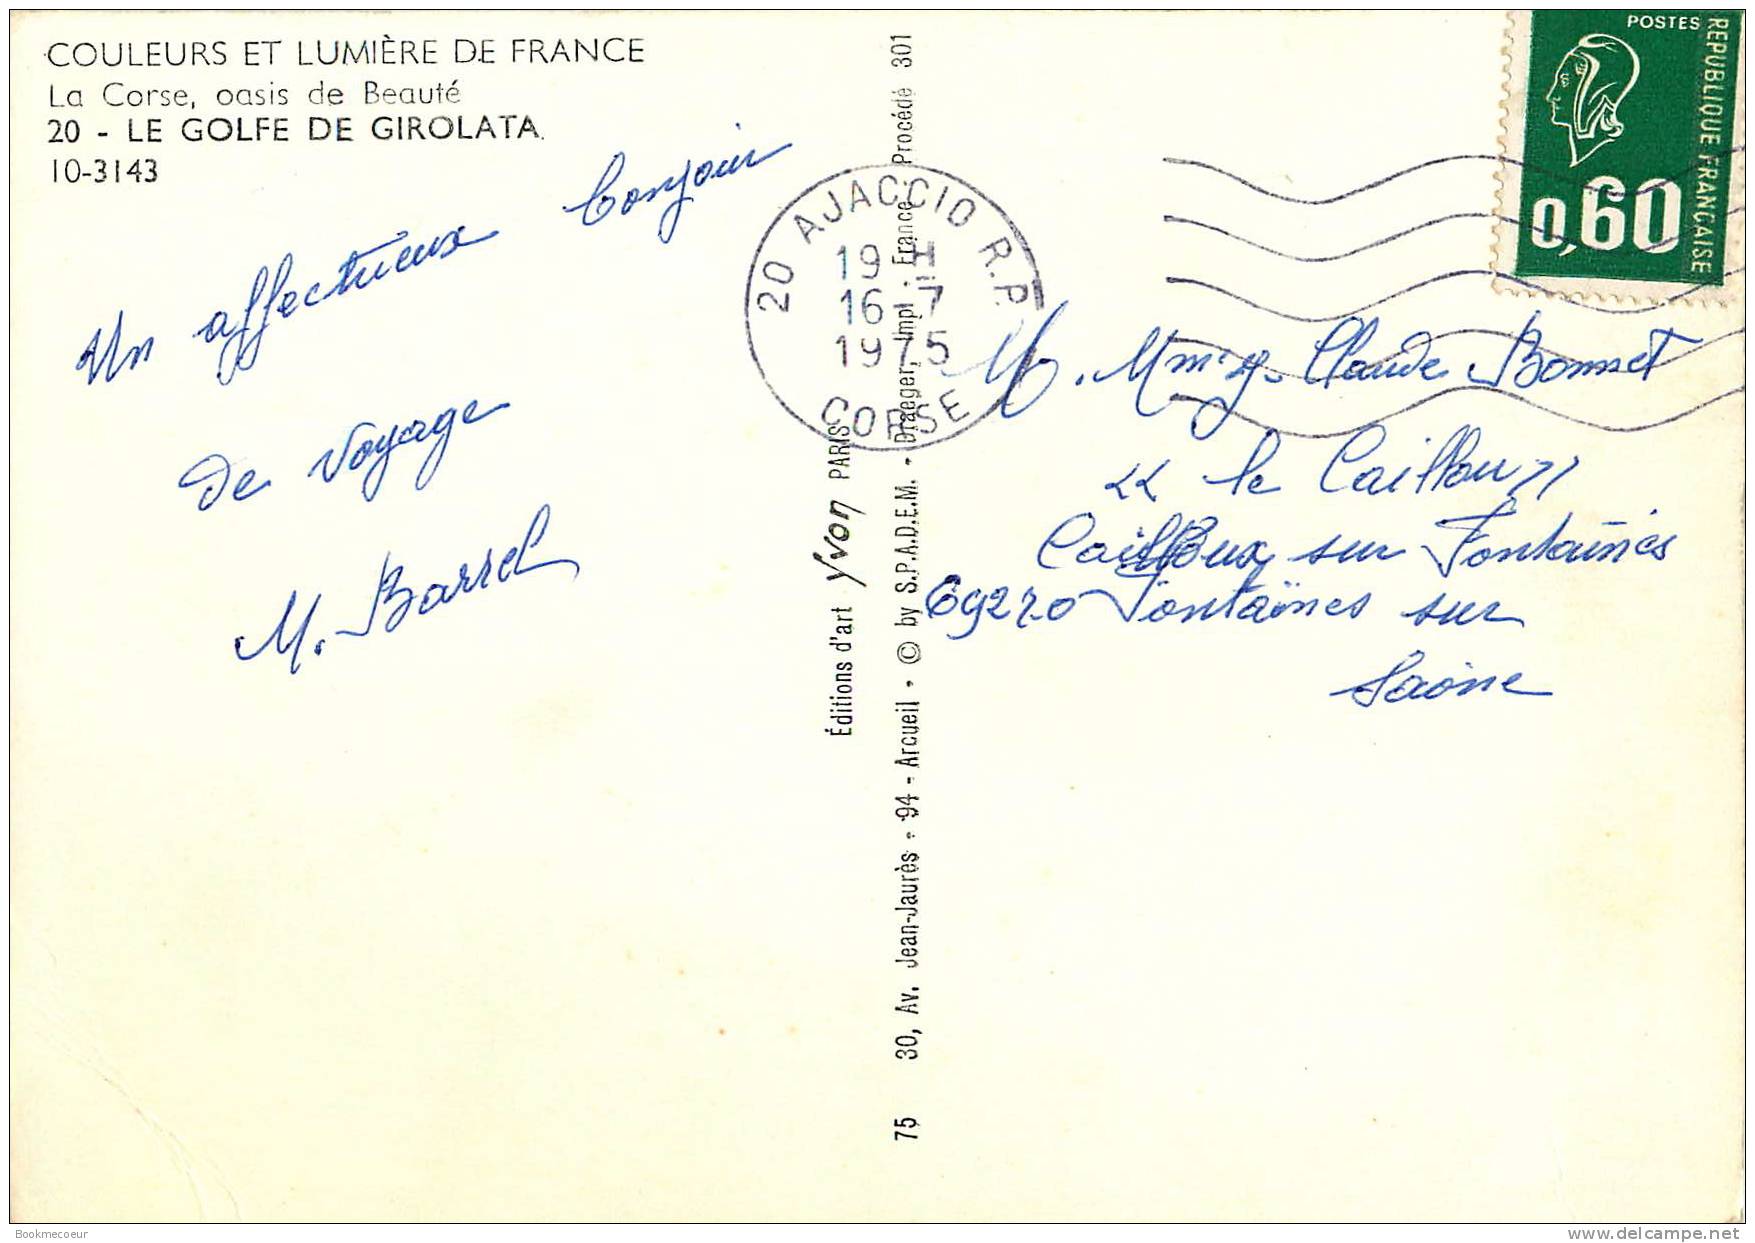 COULEURS ET LUMIÈRE DE FRANCE
La Corse, oasis de Beauté
20 - LE GOLFE DE GIROLATA
10-3143
Un affectueux bonjour
de voyage
M. Barrel
Éditions d'art Yvon PARIS
75 30, Av. Jean-Jaurès - 94 - Arcueil - © by S.P.A.D.E.M. - Draeger, Impr. France - Procédé 301
20 AJACCIO R.P.
19 H
16-7
1975
CORSE
POSTES
REPUBLIQUE FRANÇAISE
0,60
M. Mme Claude Bonnet
"le Caillou"
Cailloux sur Fontaines
69270 Fontaines sur
Saône
Bookmecoeur
www.delcampe.net